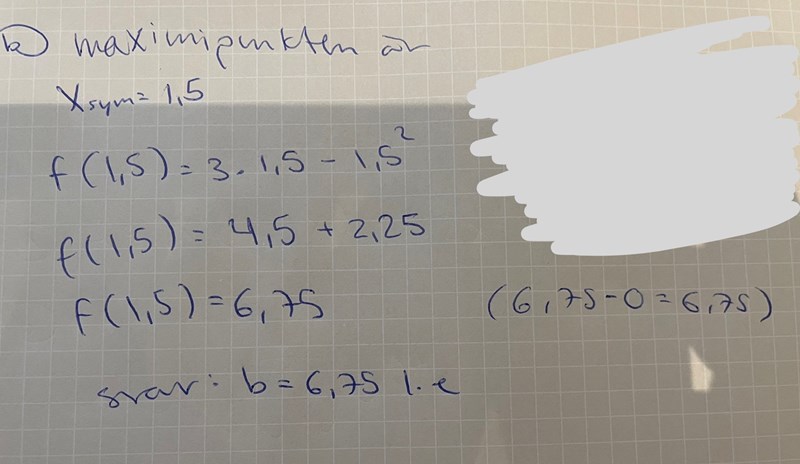 b) maximipunkten är
Xsym = 1,5
f(1,5) = 3 · 1,5 - 1,5²
f(1,5) = 4,5 + 2,25
f(1,5) = 6,75 (6,75-0 = 6,75)
svar: b = 6,75 l.e